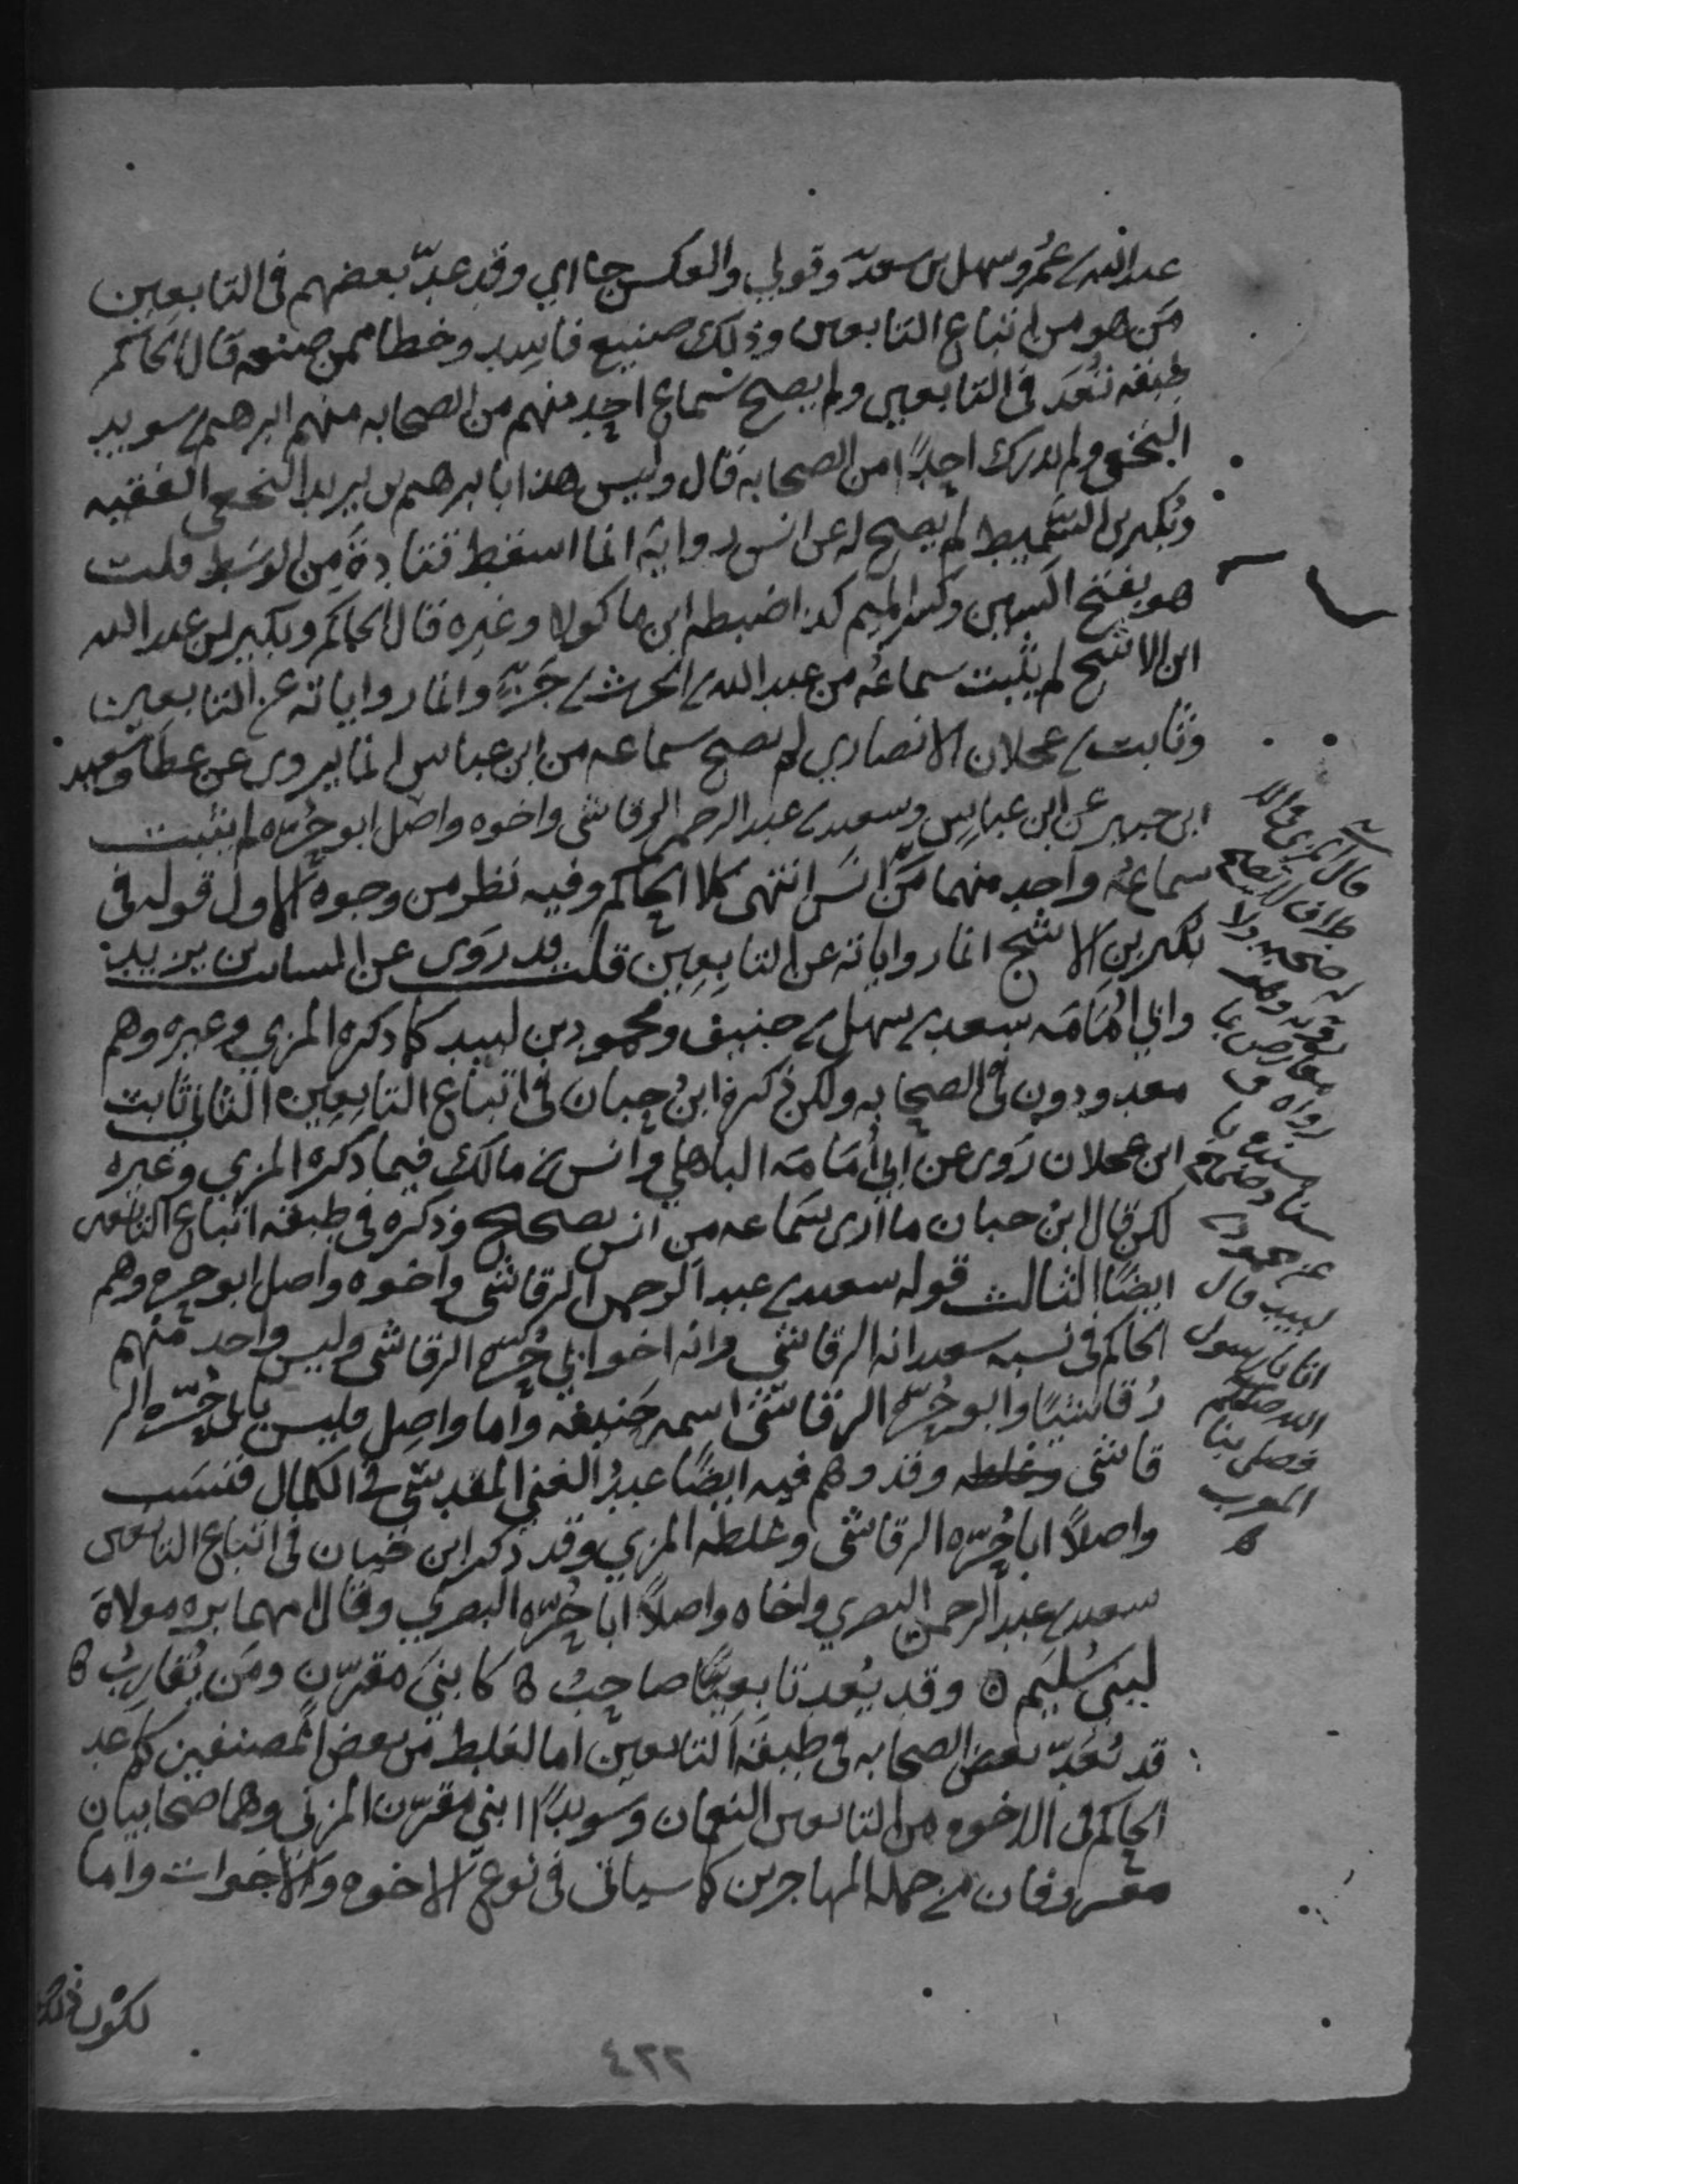 عبد الله بن عمر وسهل بن سعد وقولي والعكس جا اي وقد عد بعضهم في التابعين
من هو من اتباع التابعين وذلك صنيع فاسد وخطا ممن صنعه قال الحاكم
طبقه تعد في التابعين ولم يصح سماع احد منهم من الصحابه منهم ابرهيم بن سويد
النخعي ولم يدرك احدًا من الصحابه قال وليس هذا بابرهيم بن يزيد النخعي الفقيه
وبكير بن السميط لم يصح له عن انس روايه انما اسقط قتادة من الوسط قلت
هو بفتح السين وكسر الميم كذا ضبطه ابن ماكولا وغيره قال الحاكم وبكير بن عبد الله
ابن الاشج لم يثبت سماعه من عبد الله بن الحرث بن جزء وانما رواياته عن التابعين
وثابت بن عجلان الانصاري لم يصح سماعه من ابن عباس انما يروي عن عطا وسعيد
ابن جبير عن ابن عباس وسعيد بن عبد الرحمن الرقاشي واخوه واصل ابو حُرّه لم يثبت
سماعُ واحد منهما من انس انتهى كلام الحاكم وفيه نظر من وجوه الاول قوله في
بكير بن الاشج انما رواياته عن التابعين قلت قد روى عن السائب بن يزيد
وابي اُمَامَه سعد بن سهل بن حنيف ومحمود بن لبيد كما ذكره المزي وغيره وهم
معدودون في الصحابه ولكن ذكره ابن حبان في اتباع التابعين الثاني ثابت
ابن عجلان روى عن ابي اُمَامَه الباهلي وانس بن مالك فيما ذكره المزي وغيره
لكن قال ابن حبان ما ارى سماعه من انس بصحيح وذكره في طبقه اتباع التابعين
ايضًا الثالث قوله سعيد بن عبد الرحمن الرقاشي واخوه واصل ابو حره وهم
الحاكم في نسبه سعيد انه الرقاشي وانه اخو ابي حُرّه الرقاشي وليس واحد منهم
رُقاشيًا وابو حُرّه الرقاشي اسمه حنيفة واما واصل فليس بابي حُرّه الر
قاشي وغلطه وقد وهم فيه ايضًا عبدُ الغني المقدسي في الكمال فنسب
واصلاً ابا حُرّه الرقاشي وغلطه المزي وقد ذكر ابن حبان في اتباع التابعين
سعيد بن عبد الرحمن البصري واخاه واصلاً ابا حُرّه البصري وقال امهما بره مولاة
لبني سُليم ٥ وقد يُعد تابعيًا صاحبُ كابني مقرّن ومَن يُقاربُ
قد يُعَدّ بعض الصحابه في طبقة التابعين اما لغلط من بعض المصنفين كما عد
الحاكم في الاخوه من التابعين النعمان وسويدًا ابني مقرّن المزني وهما صحابيان
معروفان من جمله المهاجرين كما سياتي في نوع الاخوه والاخوات واما
لكون ذلك
قال المزي في
له صحبه ولا
رواه
عن محمود بن
لبيد قال
اتانا رسول
الله صلعم
فصلى بنا
المغرب
٤٢٢